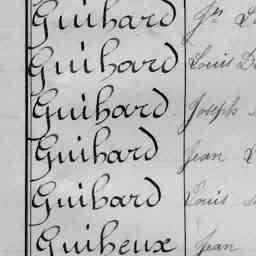 Guihard
Guihard Louis
Guihard Joseph
Guihard Jean
Guihard Louis
Guiheux Jean